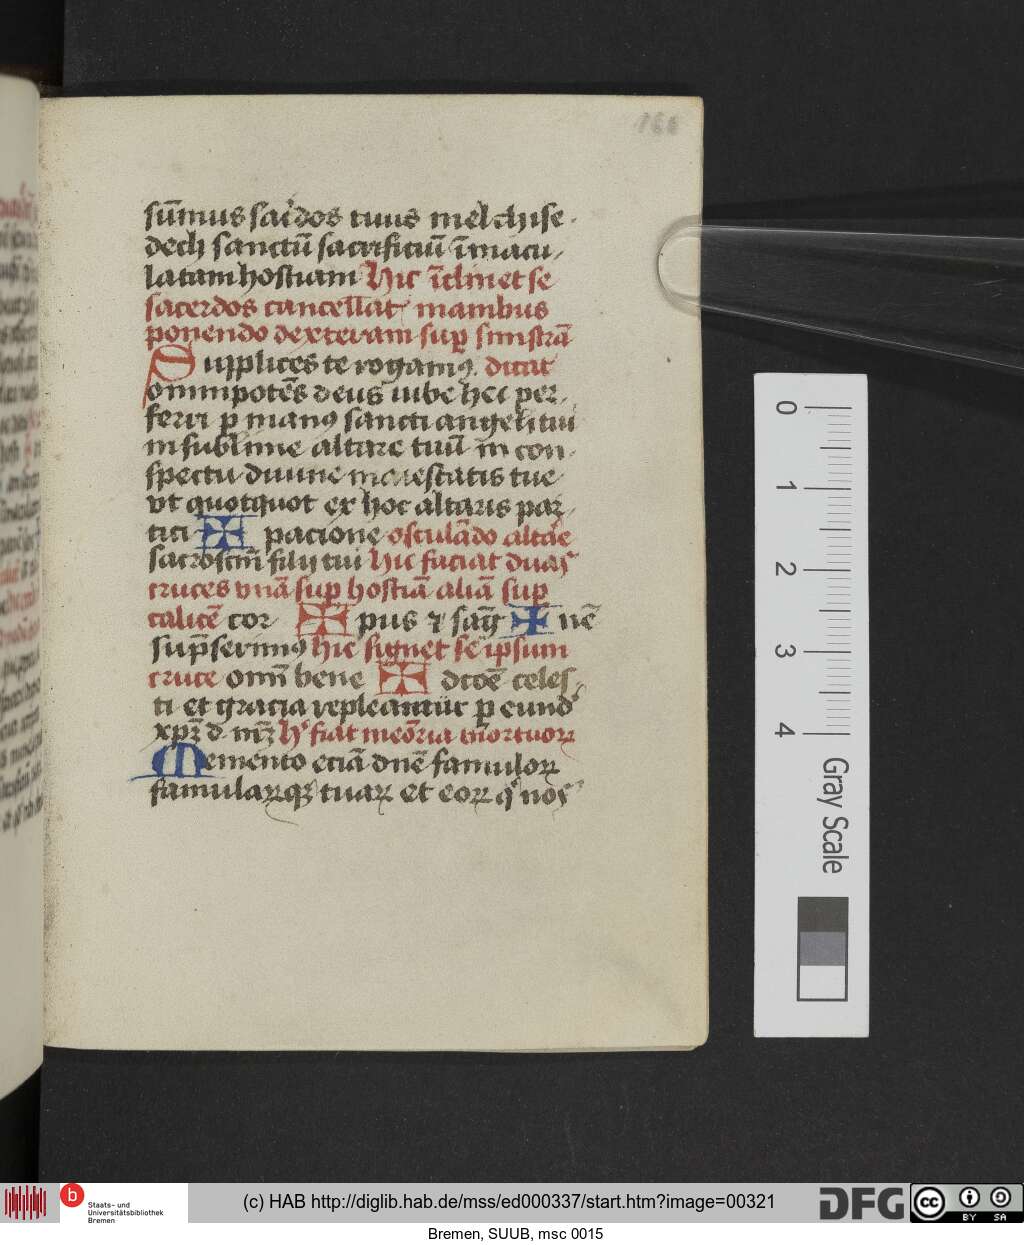 166
sūmus sac̄dos tuus melchise-
dech sanctū sacrificiū īmacu-
latam hostiam Hic īclinet se
sacerdos cancellatˀ manibus
ponendo dexteram suꝑ sinistrā
Supplices te rogamꝰ. dicat
omnipotēs deus iube hec per-
ferri ꝑ manꝰ sancti angeli tui
in sublime altare tuū in con-
spectu diuine maiestatis tue
vt quotquot ex hoc altaris par-
tici ✠ pacione osculādo altāe
sacrosctm̄ filij tui hic faciat duas
cruces vnā suꝑ hostiā aliā suꝑ
calicē cor ✠ pus ⁊ sāg ✠ nē
sūpserimꝰ hic signet se ipsum
cruce omī bene ✠ dc̄oē celes-
ti et gracia repleamur ꝑ eund
xpꝫ d. nꝫ hˢ fiat meōria mortuoꝝ
Memento eciā dn̄e famuloꝝ
famulaꝝqꝫ tuaꝝ et eoꝝ qͥ nos
0
1
2
3
4
Gray Scale
b
Staats- und
Universitätsbibliothek
Bremen
(c) HAB http://diglib.hab.de/mss/ed000337/start.htm?image=00321
DFG
cc
BY SA
Bremen, SUUB, msc 0015